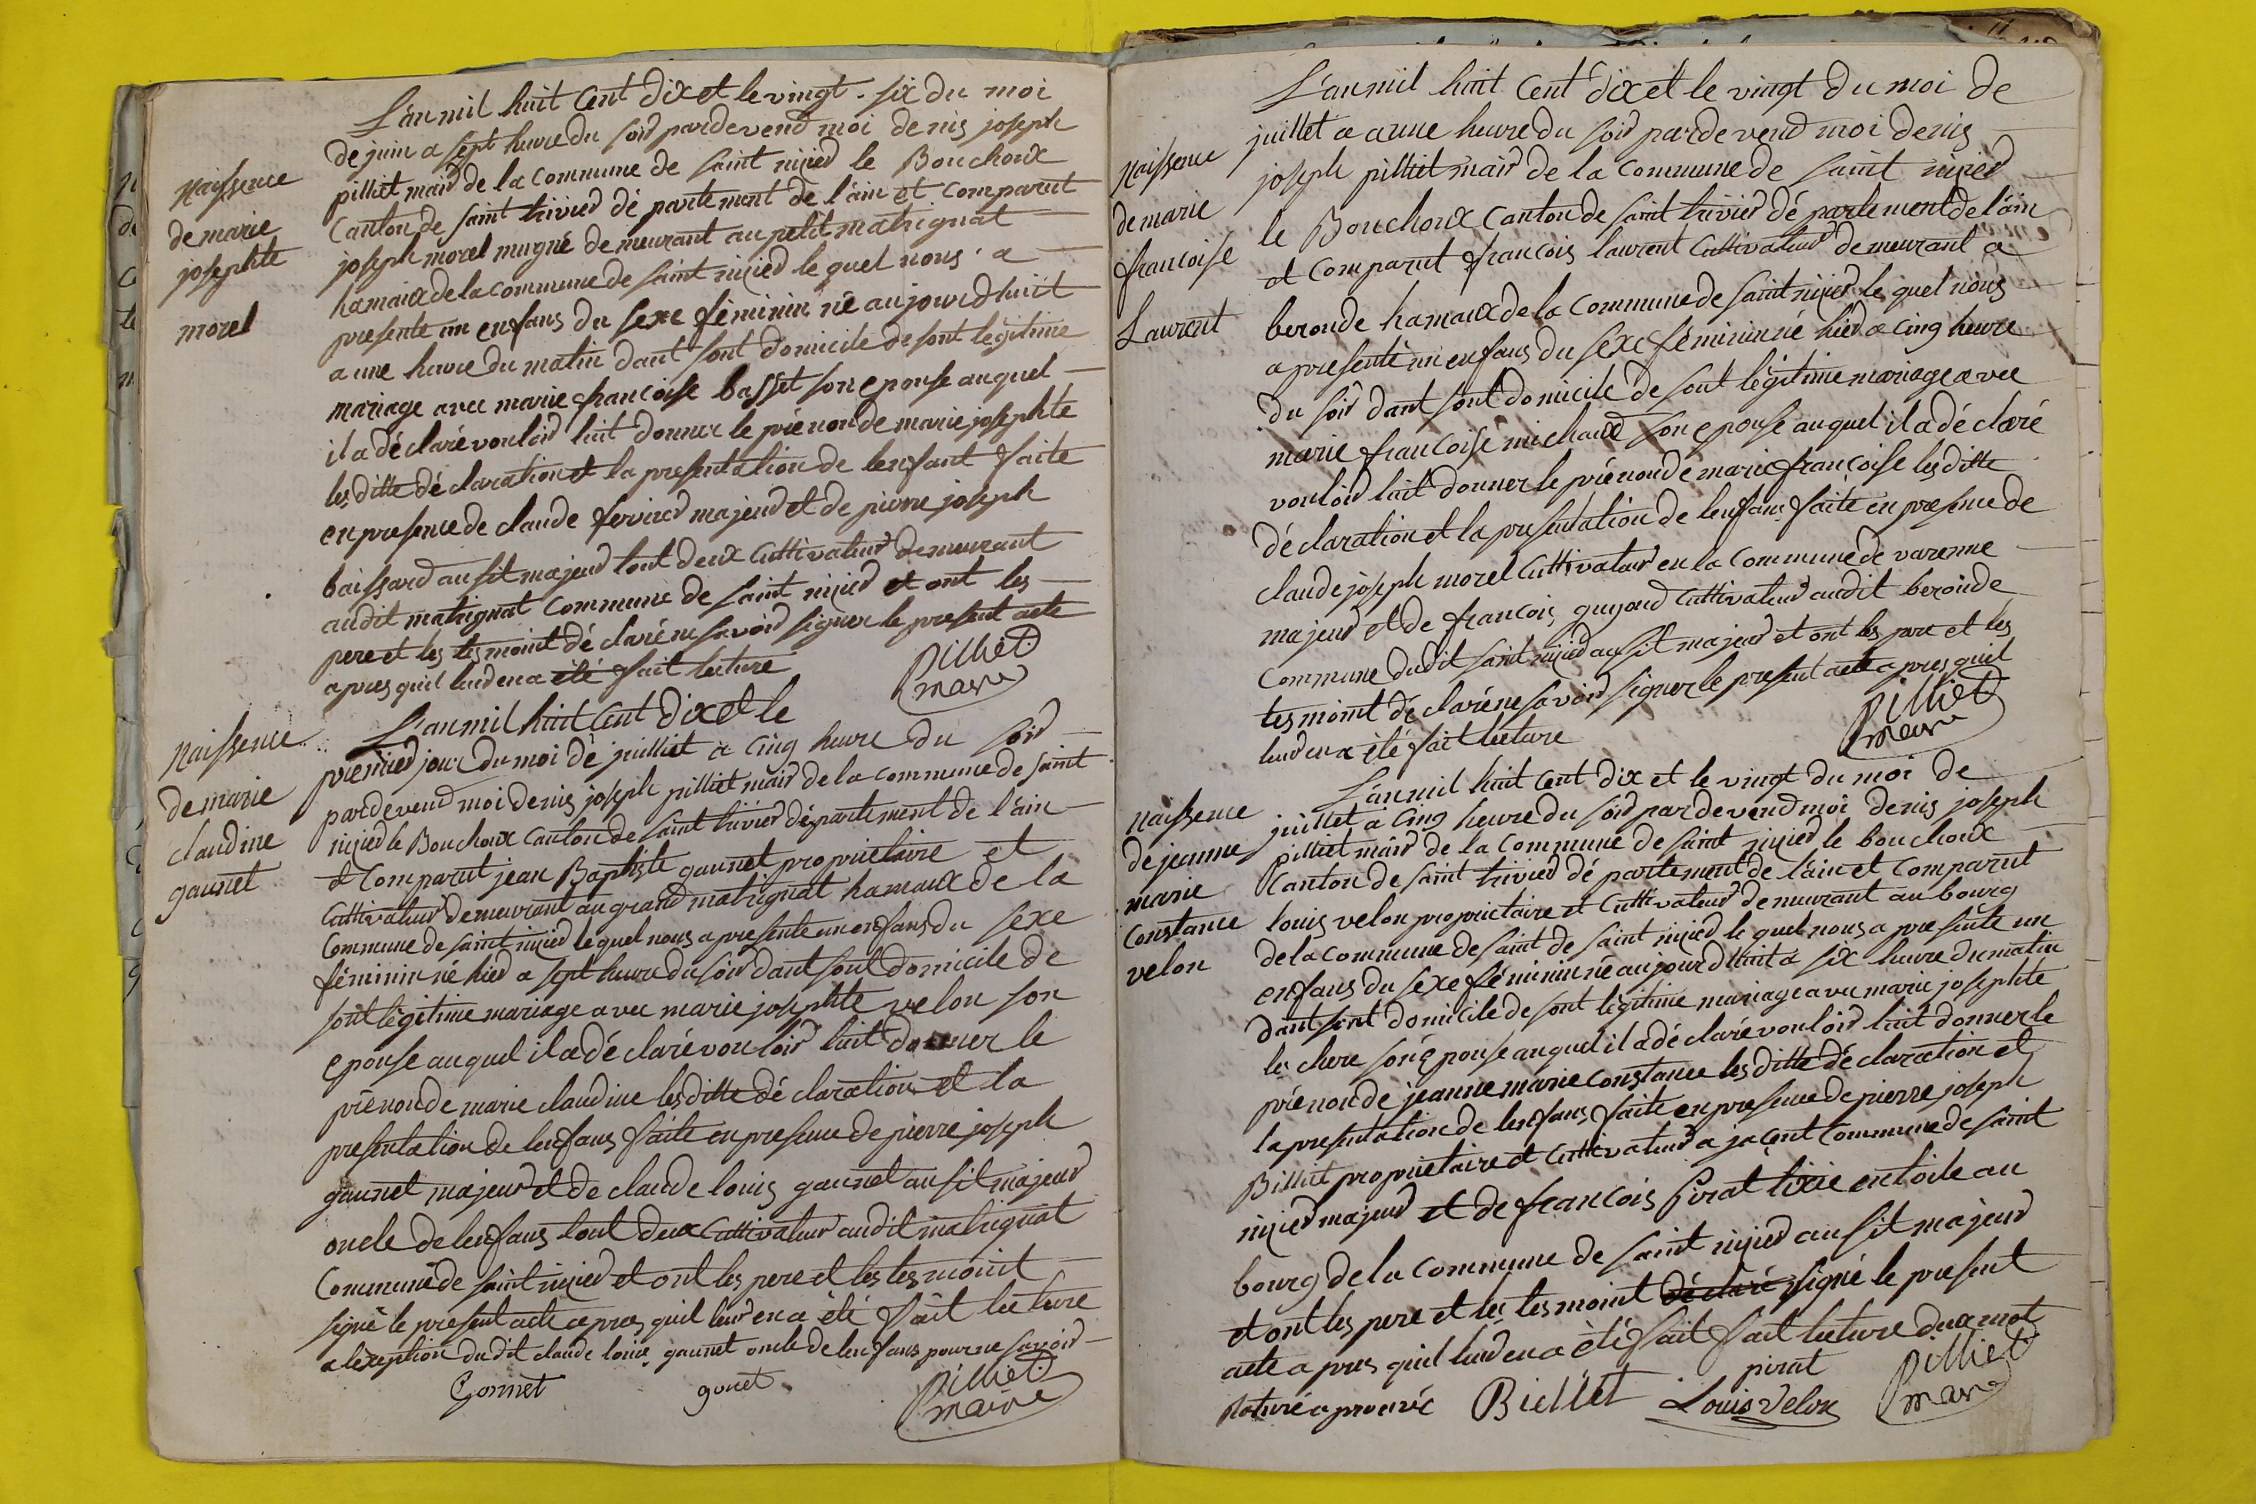 Naissence
de marie
josephte
morel
L'an mil huit Cent dix et le vingt-six du moi
de juin a sept heure du soir pardevend moi denis joseph
pilliet mair de la commune de saint nizied le Bouchoux
Canton de saint trivied dé partement de l'ain et comparut
joseph morel mugné demeurant au petit matrignat
hamaux de la commune de saint nizied le quel nous a
presente un enfans du sexe féminin né aujourdhuit
a une heure du matin dant sont domicile de sont légitime
mariage avec marie francoise basset son epouse auquel
il a dé claré vouloir luit donner le prénon de marie josephte
les ditte dé claration et la presentation de lenfant faite
en presence de claude fervied majeud et de pierre joseph
baissard ausit majeud tout deux Cultivateur demeurant
audit matrignat commune de saint nizied et ont les
pere et les tesmoint dé claré ne savoir signer le present acte
apres quil leud en a été fait lecture
Pilliet
maire
Naissence
de marie
claudine
gaunet
L'an mil huit Cent dix et le
premied jour du moi de juilliet a Cinq heure du soir
pardevend moi denis joseph pilliet mair de la commune de saint
nizied le Bouchoux Canton de saint trivied département de l'ain
et Comparut jean Baptiste gaunet propriétaire et
Cultivateur demeurant au grand matrignat hamaux de la
Commune de saint nizied le quel nous a presente un enfans du sexe
féminin né hied a sept heure du soir dant sont domicile de
sont légitime mariage avec marie josephte velon son
epouse auquel il a dé claré vouloir luit donner le
prénon de marie claudine les ditte dé claration et la
presentation de lenfans faite en presence de pierre joseph
gaunet majeur et de claude louis gaunet ausit majeud
oncle de lenfans tout deux Cultivateur audit matrignat
Commune de saint nizied et ont les pere et les tesmoint
signé le present acte apres quil leud en a été fait lecture
a lexeption dudit claude louis gaunet oncle de lenfans pour ne savoir
Gonnet gonet Pilliet
maire
Naissence
de marie
francoise
Laurent
L'an mil huit Cent dix et le vingt du moi de
juillet a aune heure du soir pardevend moi denis
joseph pilliet mair de la commune de saint nizied
le Bouchoux Canton de saint trivied dé partement de l'ain
et Comparut francois laurent Cultivateur demeurant a
beronde hamaux de la commune de saint nizied le quel nous
a presenté un enfans du sexe féminin né hied a cinq heure
du soir dant sont domicile de sont légitime mariage avec
marie francoise michaud son epouse auquel il a dé claré
vouloir luit donner le prénon de marie francoise les ditte
dé claration et la presentation de lenfans faite en presence de
claude joseph morel Cultivateur en la Commune de varenne
majeud et de francois guyoud Cultivateur audit beronde
commune dudit saint nizied ausit majeud et ont les pere et les
tesmoint dé claré ne savoir signer le present acte apres quil
leud en a été fait lecture
Pilliet
maire
Naissence
de jeanne
marie
Constance
velon
L'an mil huit Cent dix et le vingt du moi de
juillet a Cinq heure du soir pardevend moi denis joseph
pilliet mair de la commune de saint nizied le bouchoux
Canton de saint trivied dé partement de l'ain et Comparut
louis velon proprietaire et Cultivateur demeurant au bourg
de la commune de saint de saint nizied le quel nous a presente un
enfans du sexe féminin né aujourdhuit a six heure du matin
dant sont domicile de sont légitime mariage avec marie josephte
les chere son epouse auquel il a dé claré vouloir luit donner le
prénon de jeanne marie Constance les ditte dé claration et
la presentation de lenfans faite en presence de pierre joseph
Billiet proprietaire et Cultivateur a jacent Commune de saint
nizied majeud et de francois Pirat tixie en toile au
bourg de la commune de saint nizied ausit majeud
et ont les pere et les tesmoint dé claré signé le present
acte apres quil leud en a été fait fait lecture deux mot
raturé aprouvé Biellet pirat Louis Velon Pilliet
maire